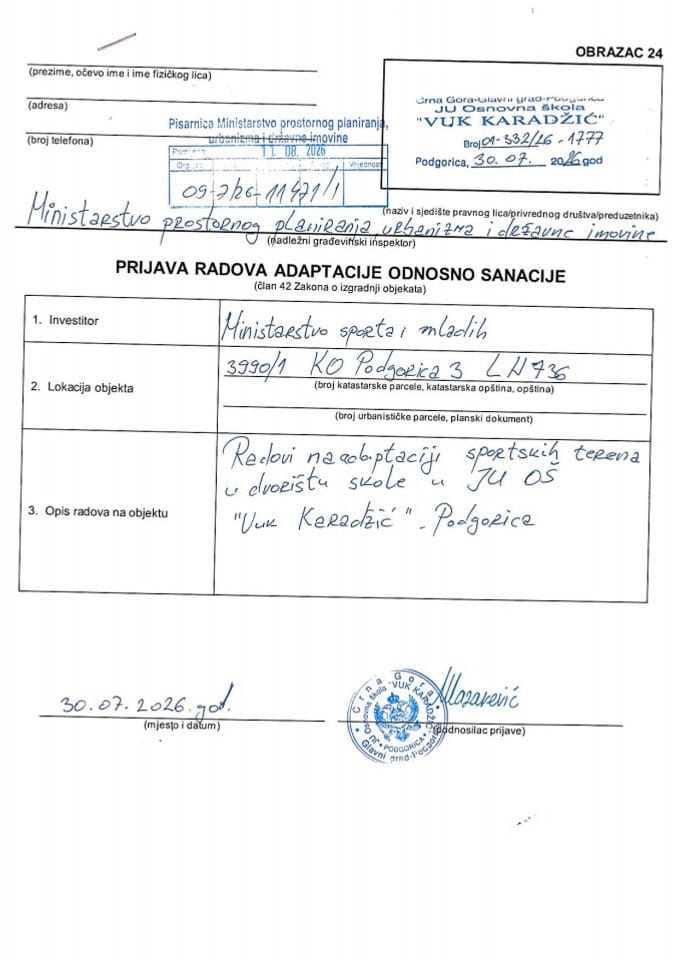 OBRAZAC 24
(prezime, očevo ime i ime fizičkog lica)
(adresa)
(broj telefona)
Crna Gora-Glavni grad-Podgorica
JU Osnovna škola
"VUK KARADŽIĆ"
Broj 01-332/26-1777
Podgorica, 30.07. 2026 god
Pisarnica Ministarstvo prostornog planiranja,
urbanizma i državne imovine
11. 08. 2026
Vrijednost
09-7/26-11471/1
(naziv i sjedište pravnog lica/privrednog društva/preduzetnika)
Ministarstvo prostornog planiranja, urbanizma i državne imovine
(nadležni građevinski inspektor)
PRIJAVA RADOVA ADAPTACIJE ODNOSNO SANACIJE
(član 42 Zakona o izgradnji objekata)
1. Investitor
Ministarstvo sporta i mladih
2. Lokacija objekta
3990/1 KO Podgorica 3 LN 736
(broj katastarske parcele, katastarska opština, opština)
(broj urbanističke parcele, planski dokument)
3. Opis radova na objektu
Radovi na adaptaciji sportskih terena
u dvorištu skole u JU OŠ
"Vuk Karadžić". Podgorica
30.07.2026.god.
(mjesto i datum)
Crna Gora
JU Osnovna škola "VUK KARADŽIĆ"
PODGORICA
Glavni grad-Podgorica
(podnosilac prijave)